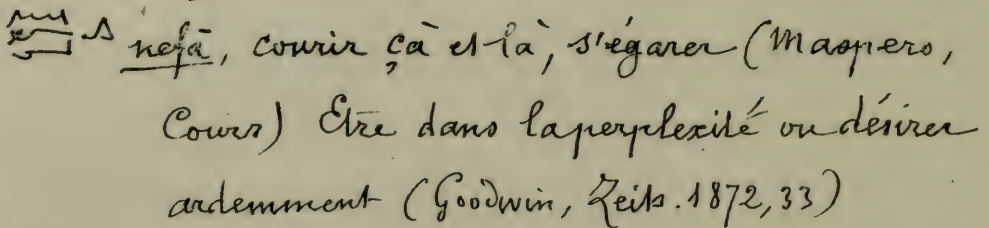 𓈖𓆑𓂝𓂻 nefā, courir çà et là, s'égarer (Maspero,
Cours) Etre dans la perplexité ou désirer
ardemment (Goodwin, Zeits. 1872, 33)